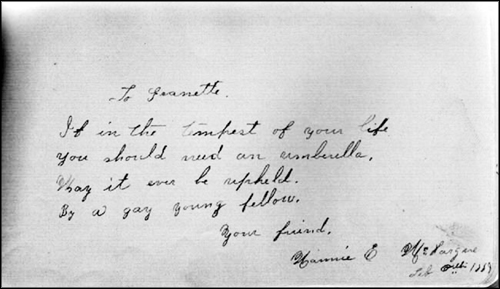 To Jeanette.
If in the tempest of your life
You should need an umberella,
May it ever be upheld.
By a gay young fellow.
Your friend.
Nannie E
Feb 1889